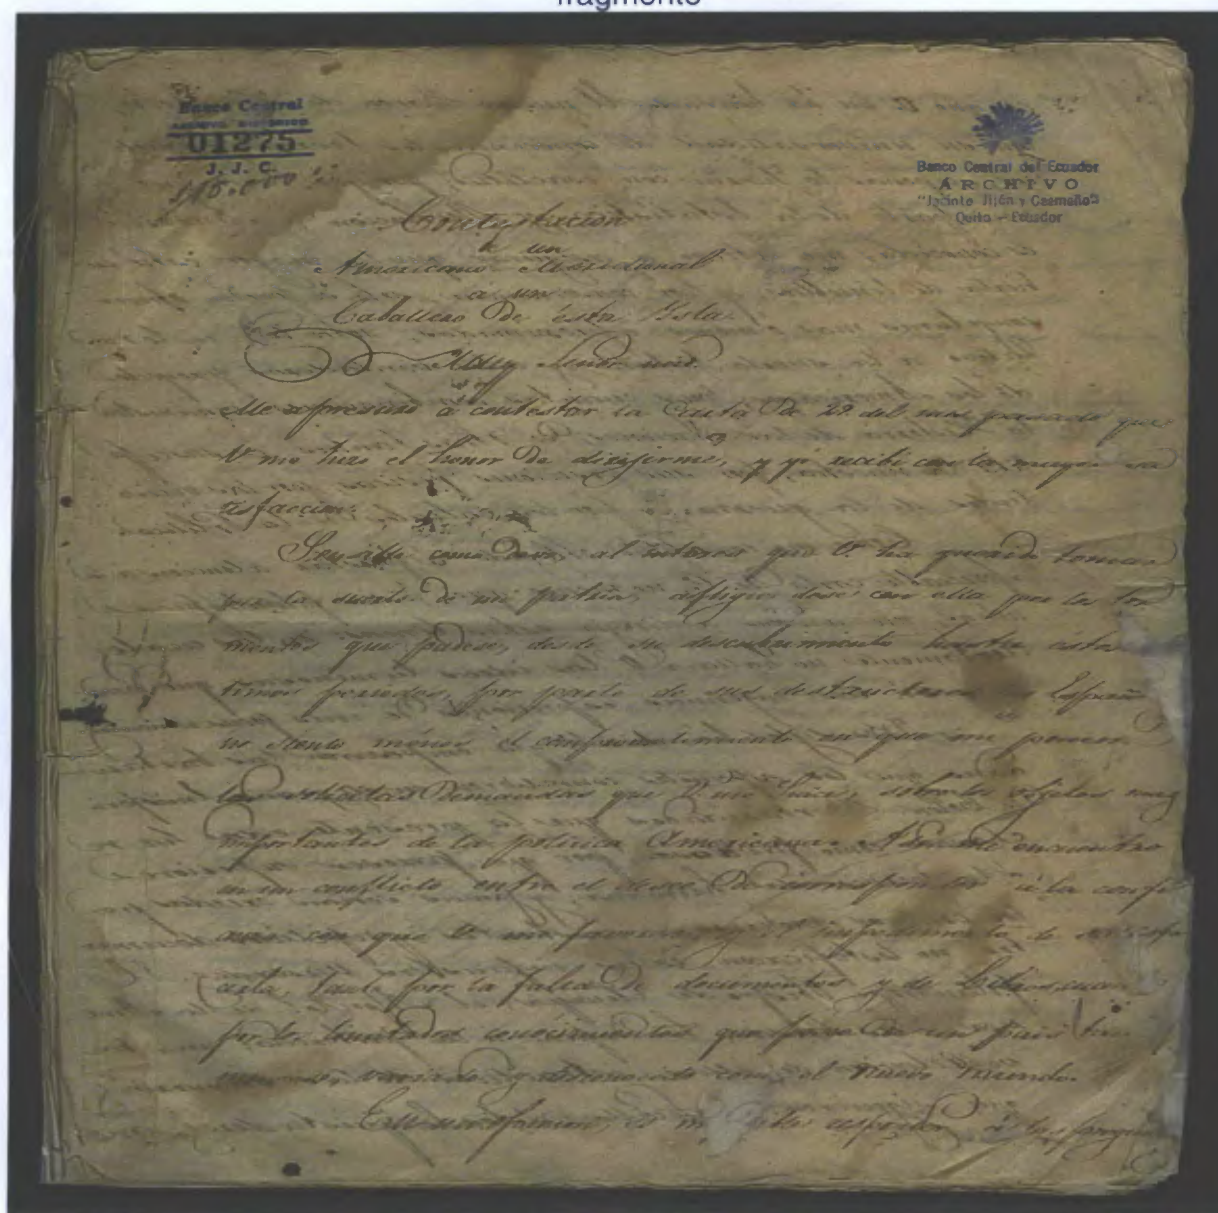 fragmento
Banco Central
ARCHIVO HISTORICO
01275
J. J. C.
Banco Central del Ecuador
ARCHIVO
"Jacinto Jijón y Caamaño"
Quito - Ecuador
Contestacion
de un
Americano Meridional
a un
Caballero de esta Isla.
Muy Señor mio.
Me apresuro á contestar la Carta de 29 del mes pasado que
V me hizo el honor de dirijirme, y yó recibi con la mayor sa
tisfaccion.
Sensible como debo, al interes que V. ha querido tomar
por la suerte de mi patria, afligiendose con ella por los tor
mentos que padece, desde su descubrimiento hasta estos
timos periodos, por parte de sus destructores los Españ
no siento ménos el comprometimiento en que me ponen
las solicitas demandas que V me hace, sobre los objetos mas
importantes de la politica Americana. Asi, me encuentro
en un conflicto entre el deseo de corresponder á la confi
anza con que V. me favorece y el impedimento de satisfa
cerla, tanto por la falta de documentos y de libros, cuan
por los limitados conocimientos que poseo de un pais tan
inmenso, variado y desconocido como el Nuevo Mundo.
En mi opinion, es imposible responder á las pregun